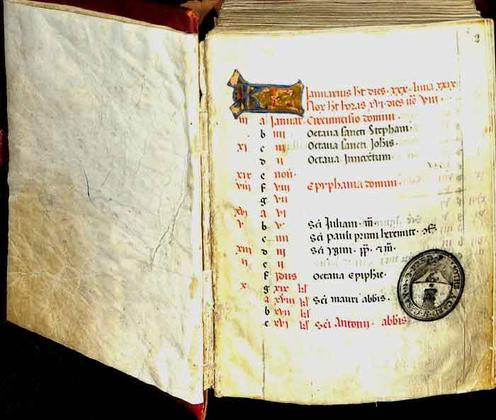 2
Januarius ht dies. xxx. luna xxix
Nox ht horas xvi. dies uo viii.
iii a Januar. Circumcisio domini.
b iiii Octava sancti Stephani.
xi c iii Octava sancti Johis.
d ii Octava Innocetum.
xix e non.
viii f viii Epyphania domini.
g vii
xvi a vi
v b v Sci Juliani. m.
c iiii Sci Pauli primi heremite.
xiii d iii Sci ygini. pp. m.
ii e ii
f Idus Octava Epiphie.
x g xix kl
a xviii kl Sci mauri abbis.
b xvii kl
c xvi kl Sci Antonii. abbis